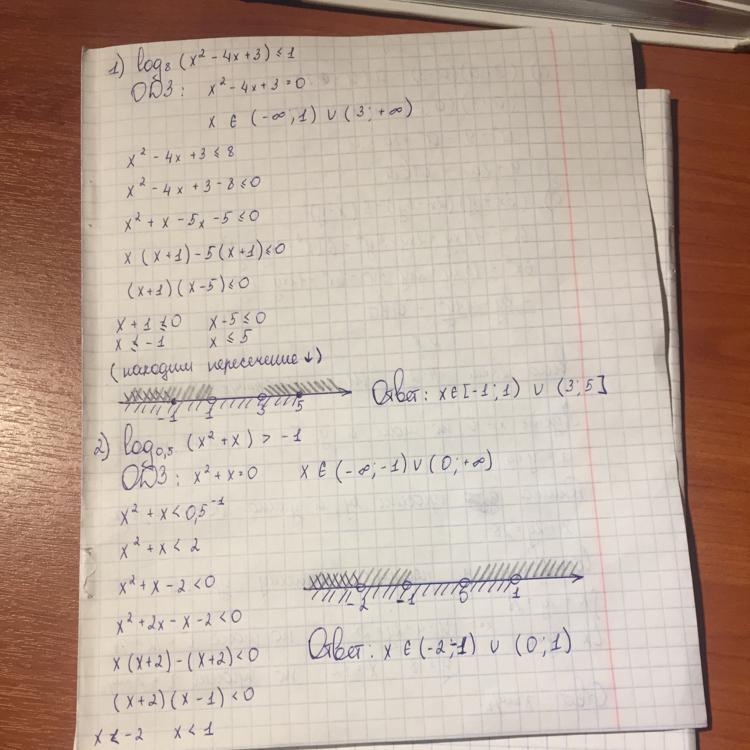 1) log₈ (x² - 4x + 3) ≤ 1
ОДЗ: x² - 4x + 3 = 0
x ∈ (-∞; 1) ∪ (3; +∞)
x² - 4x + 3 ≤ 8
x² - 4x + 3 - 8 ≤ 0
x² + x - 5x - 5 ≤ 0
x (x + 1) - 5 (x + 1) ≤ 0
(x + 1) (x - 5) ≤ 0
x + 1 ≤ 0 x - 5 ≤ 0
x ≤ -1 x ≤ 5
(находим пересечение ↓)
-1 1 3 5
Ответ: x ∈ [-1; 1) ∪ (3; 5]
2) log₀,₅ (x² + x) > -1
ОДЗ: x² + x = 0 x ∈ (-∞; -1) ∪ (0; +∞)
x² + x < 0,5⁻¹
x² + x < 2
x² + x - 2 < 0
x² + 2x - x - 2 < 0
x (x + 2) - (x + 2) < 0
(x + 2) (x - 1) < 0
x < -2 x < 1
-2 -1 0 1
Ответ: x ∈ (-2; -1) ∪ (0; 1)